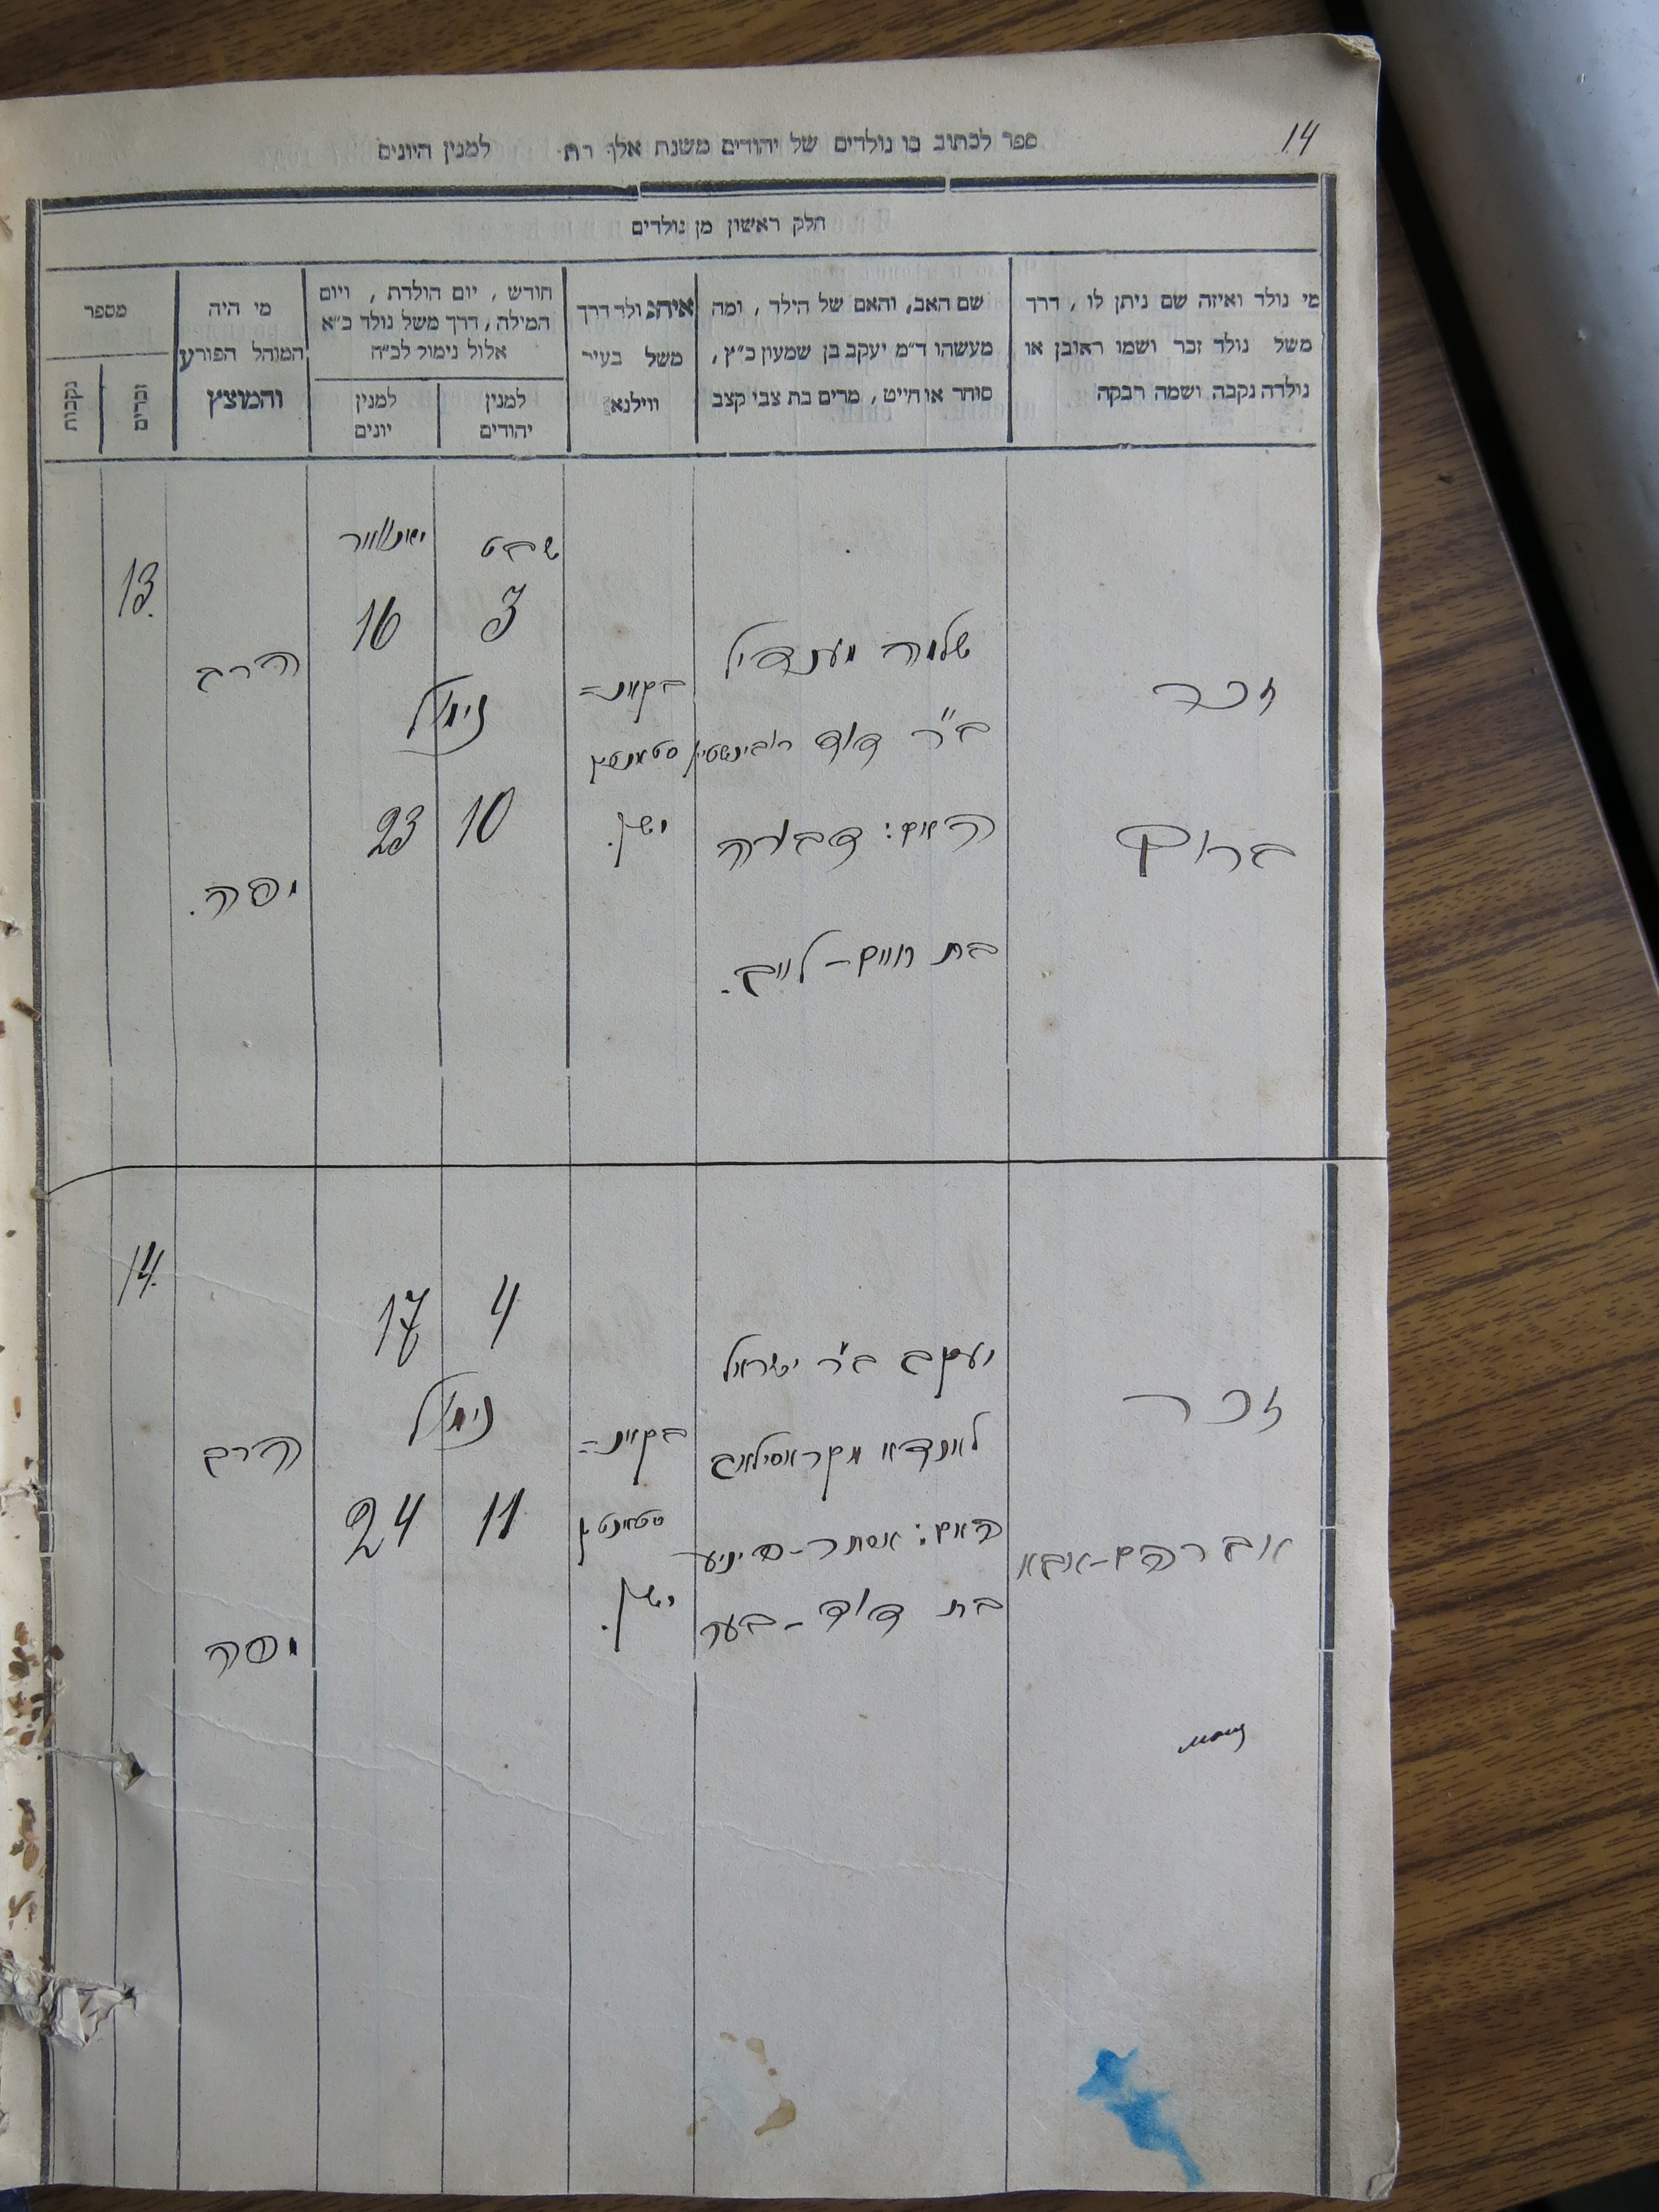 14
ספר לכתוב בו נולדים של יהודים משנת אלף רת למנין היונים
חלק ראשון מן נולדים
מי נולד ואיזה שם ניתן לו, דרך
משל נולד זכר ושמו ראובן או
נולדה נקבה ושמה רבקה
שם האב, והאם של הילד, ומה
מעשהו ד״מ יעקב בן שמעון כ״ץ,
סוחר או חייט, מרים בת צבי קצב
איה נולד דרך
משל בעיר
ווילנא
חודש, יום הולדת, ויום
המילה, דרך משל נולד כ״א
אלול נימול לכ״ח
למנין
יהודים
למנין
יונים
מי היה
המוהל הפורע
והמוצץ
מספר
זכרים
נקבות
זכר
ברוך
שלמה מענדיל
ב״ר דוד רובינשטיין
האם: דבורה
בת חיים-לייב.
בקאנ=
סטאנטין
ישן.
שבט
3
נימול
10
יאנואר
16
23
הרב
יפה.
13.
זכר
אברהם-אבא
יעקב ב״ר ישראל
לאנדא מקראסילאב
האם: אסתר-
בת דוד-בער
בקאנ=
סטאנטין
ישן.
4
נימול
11
17
24
הרב
יפה
14.